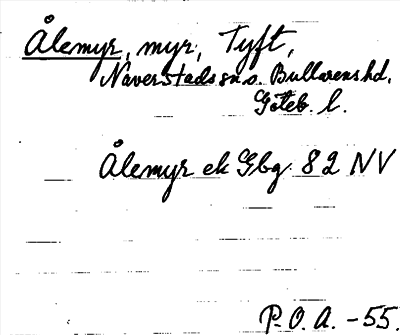 Ålemyr, myr, Tyft,
Naverstads sn. o. Bullarens hd.
Göteb. l.
Ålemyr ek Gbg 82 NV
P.O.A. -55.